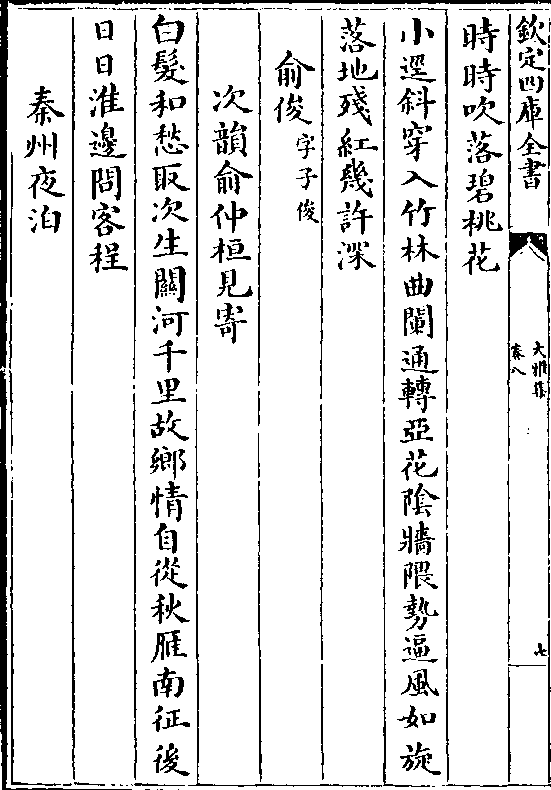 欽定四庫全書
大雅集
卷八
七
時時吹落碧桃花
小逕斜穿入竹林曲闌通轉亞花陰牆隈勢逼風如旋
落地殘紅幾許深
俞俊字子俊
次韻俞仲桓見寄
白髮和愁取次生關河千里故鄉情自從秋雁南征後
日日淮邊問客程
秦州夜泊